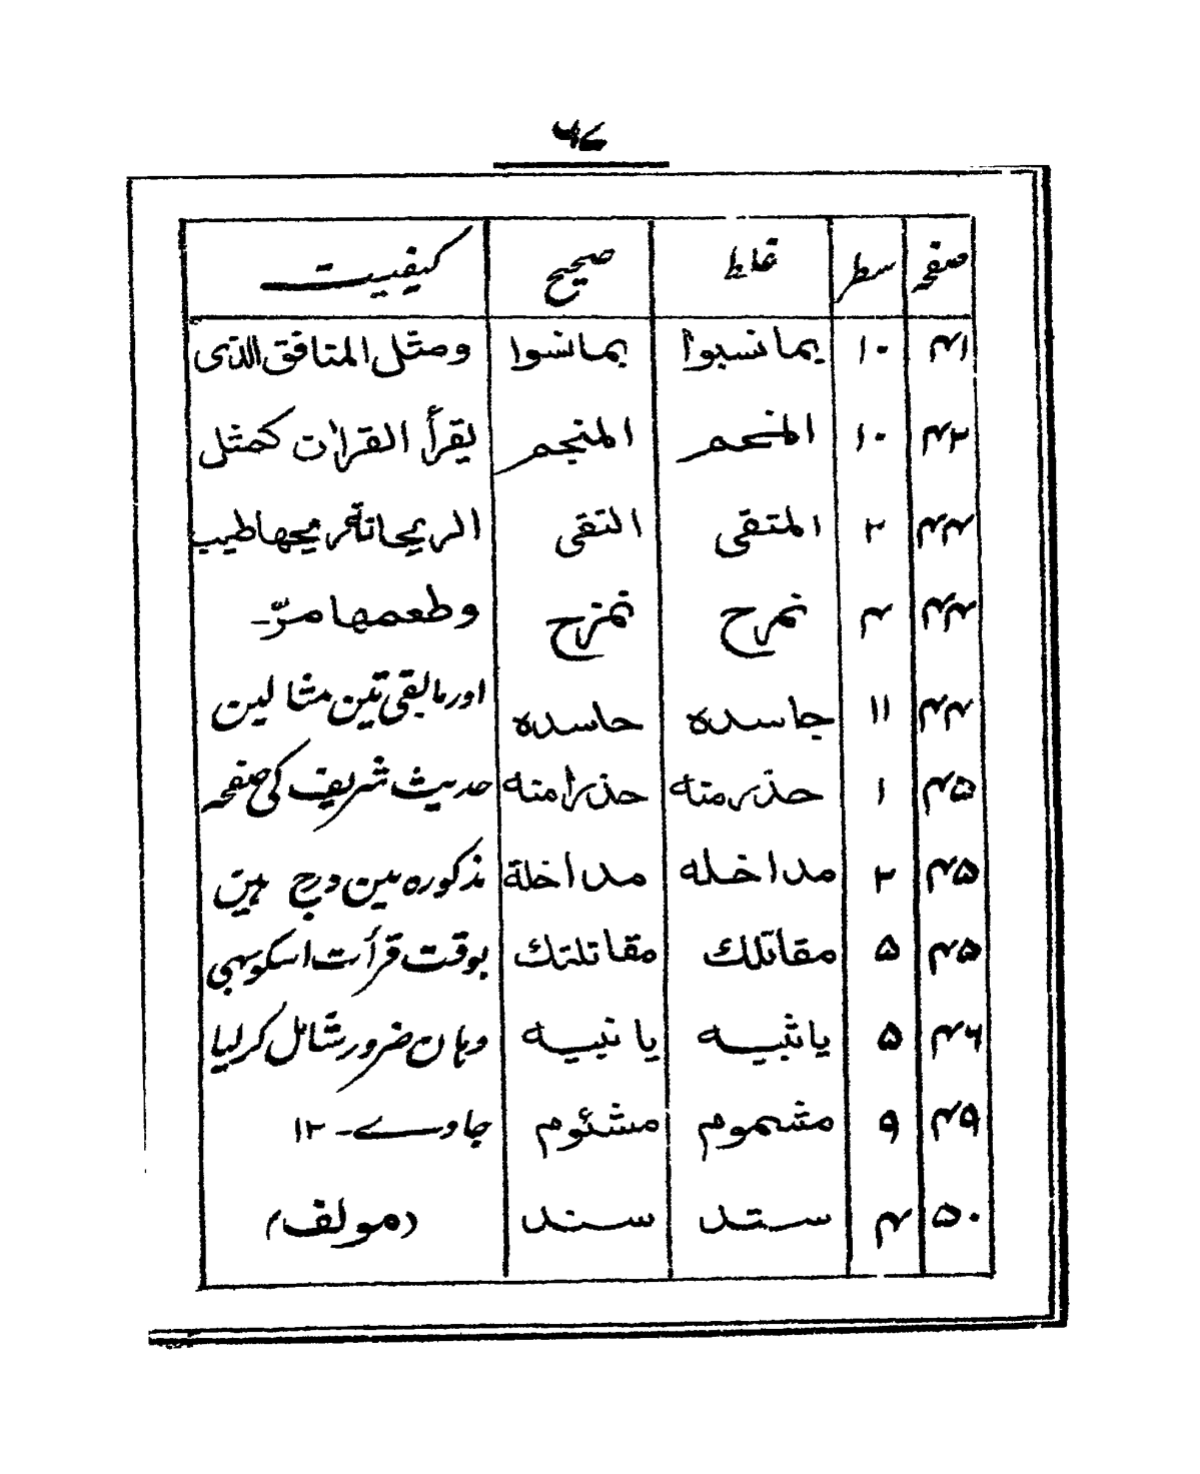 ۶۷
صفحہ سطر غلط صحیح کیفیت
۴۱ ۱۰ یمانسبوا بمانسوا ومثل المنافق الذی
۴۲ ۱۰ المنحم المنجم یقرأ القراٰن کمثل
۴۴ ۲ المتقی التقی الریحانة ریحها طیب
۴۴ ۴ نمرح نمزح وطعمها مرّ۔
۴۴ ۱۱ جاسدہ حاسدہ اور مابقی تین مثالین
۴۵ ۱ حذرمنه حذرامنه حدیث شریف کی صفحہ
۴۵ ۲ مداخله مداخلة مذکورہ مین درج ہین
۴۵ ۵ مقاتلك مقاتلتك بوقت قرأت اسکوبہی
۴۶ ۵ یاثبیه یانبیه وہان ضرور شامل کرلیا
۴۹ ۹ مشموم مشئوم جاوے۔ ۱۲
۵۰ ۴ ستد سند (مولف)